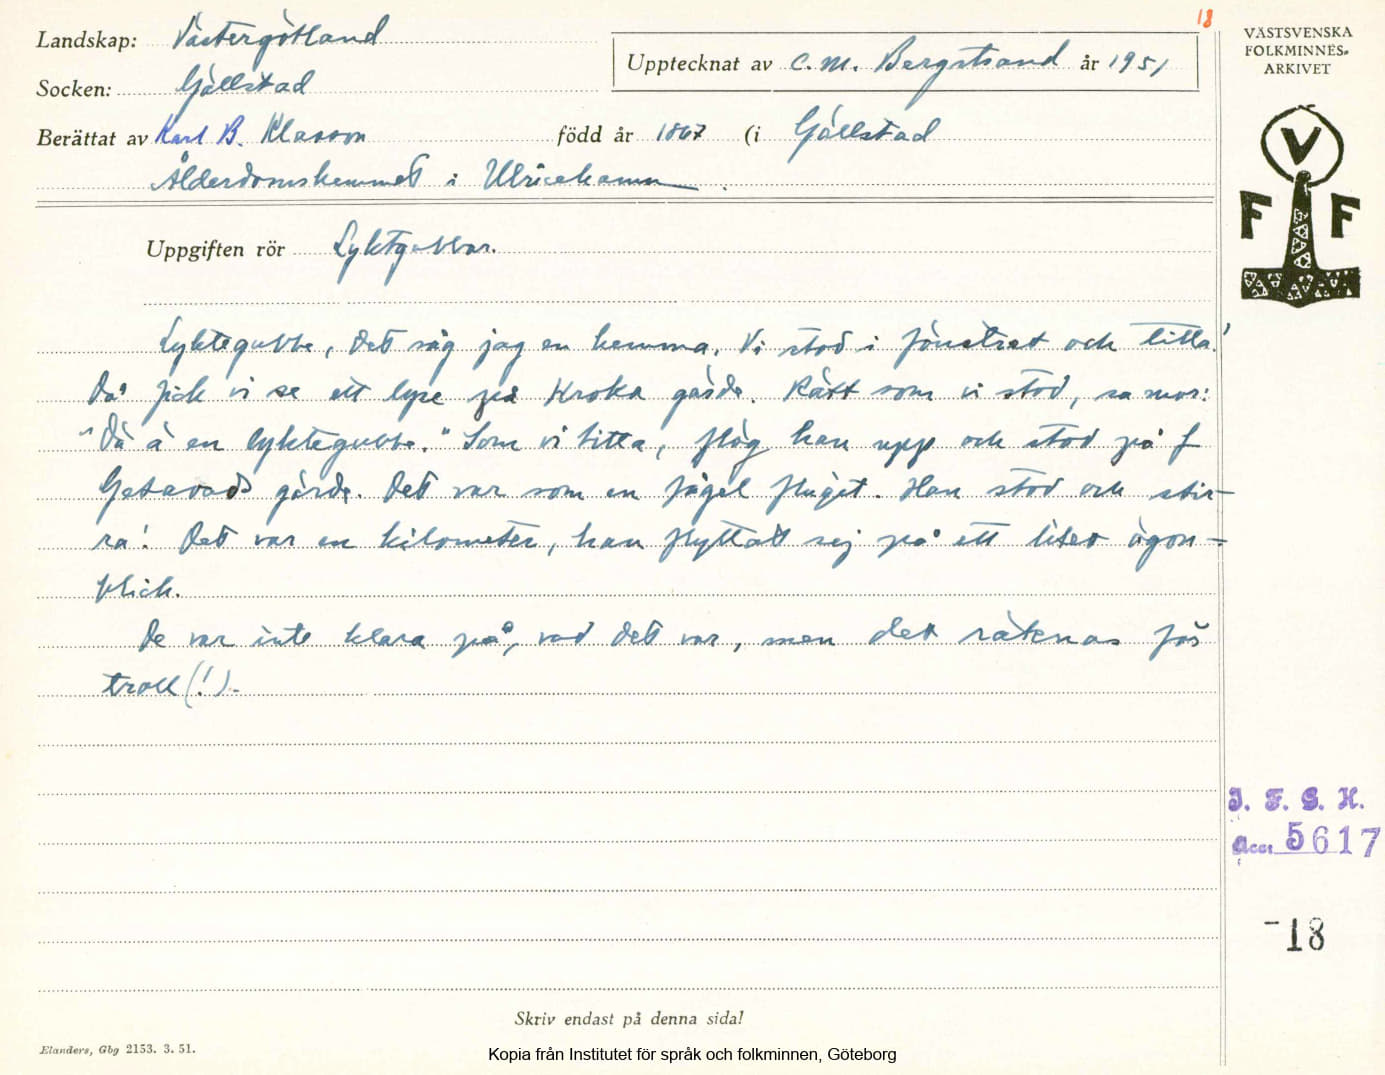 18
Landskap: Västergötland
Socken: Gällstad
Upptecknat av C. M. Bergstrand år 1951
Berättat av Karl B. Klasson född år 1867 (i Gällstad
Ålderdomshemmet i Ulricehamn.
VÄSTSVENSKA
FOLKMINNES-
ARKIVET
V
F F
Uppgiften rör Lyktgubbar.
Lyktegubbe, det såg jag en hemma. Vi stod i fönstret och titta!
Då fick vi se ett lyse på Kroka gärde. Rätt som vi stod, sa mor:
"Dä ä en lyktegubbe." Som vi titta, flög han upp och stod på
gärde. Det var som en fågel flugit. Han stod och stir-
ra! Det var en kilometer, han flyttat sej på ett litet ögon-
blick.
De var inte klara på, vad det var, men det räknas för
troll (!).
I. F. G. H.
Acc. 5617
-18
Skriv endast på denna sida!
Elanders, Gbg 2153. 3. 51.
Kopia från Institutet för språk och folkminnen, Göteborg